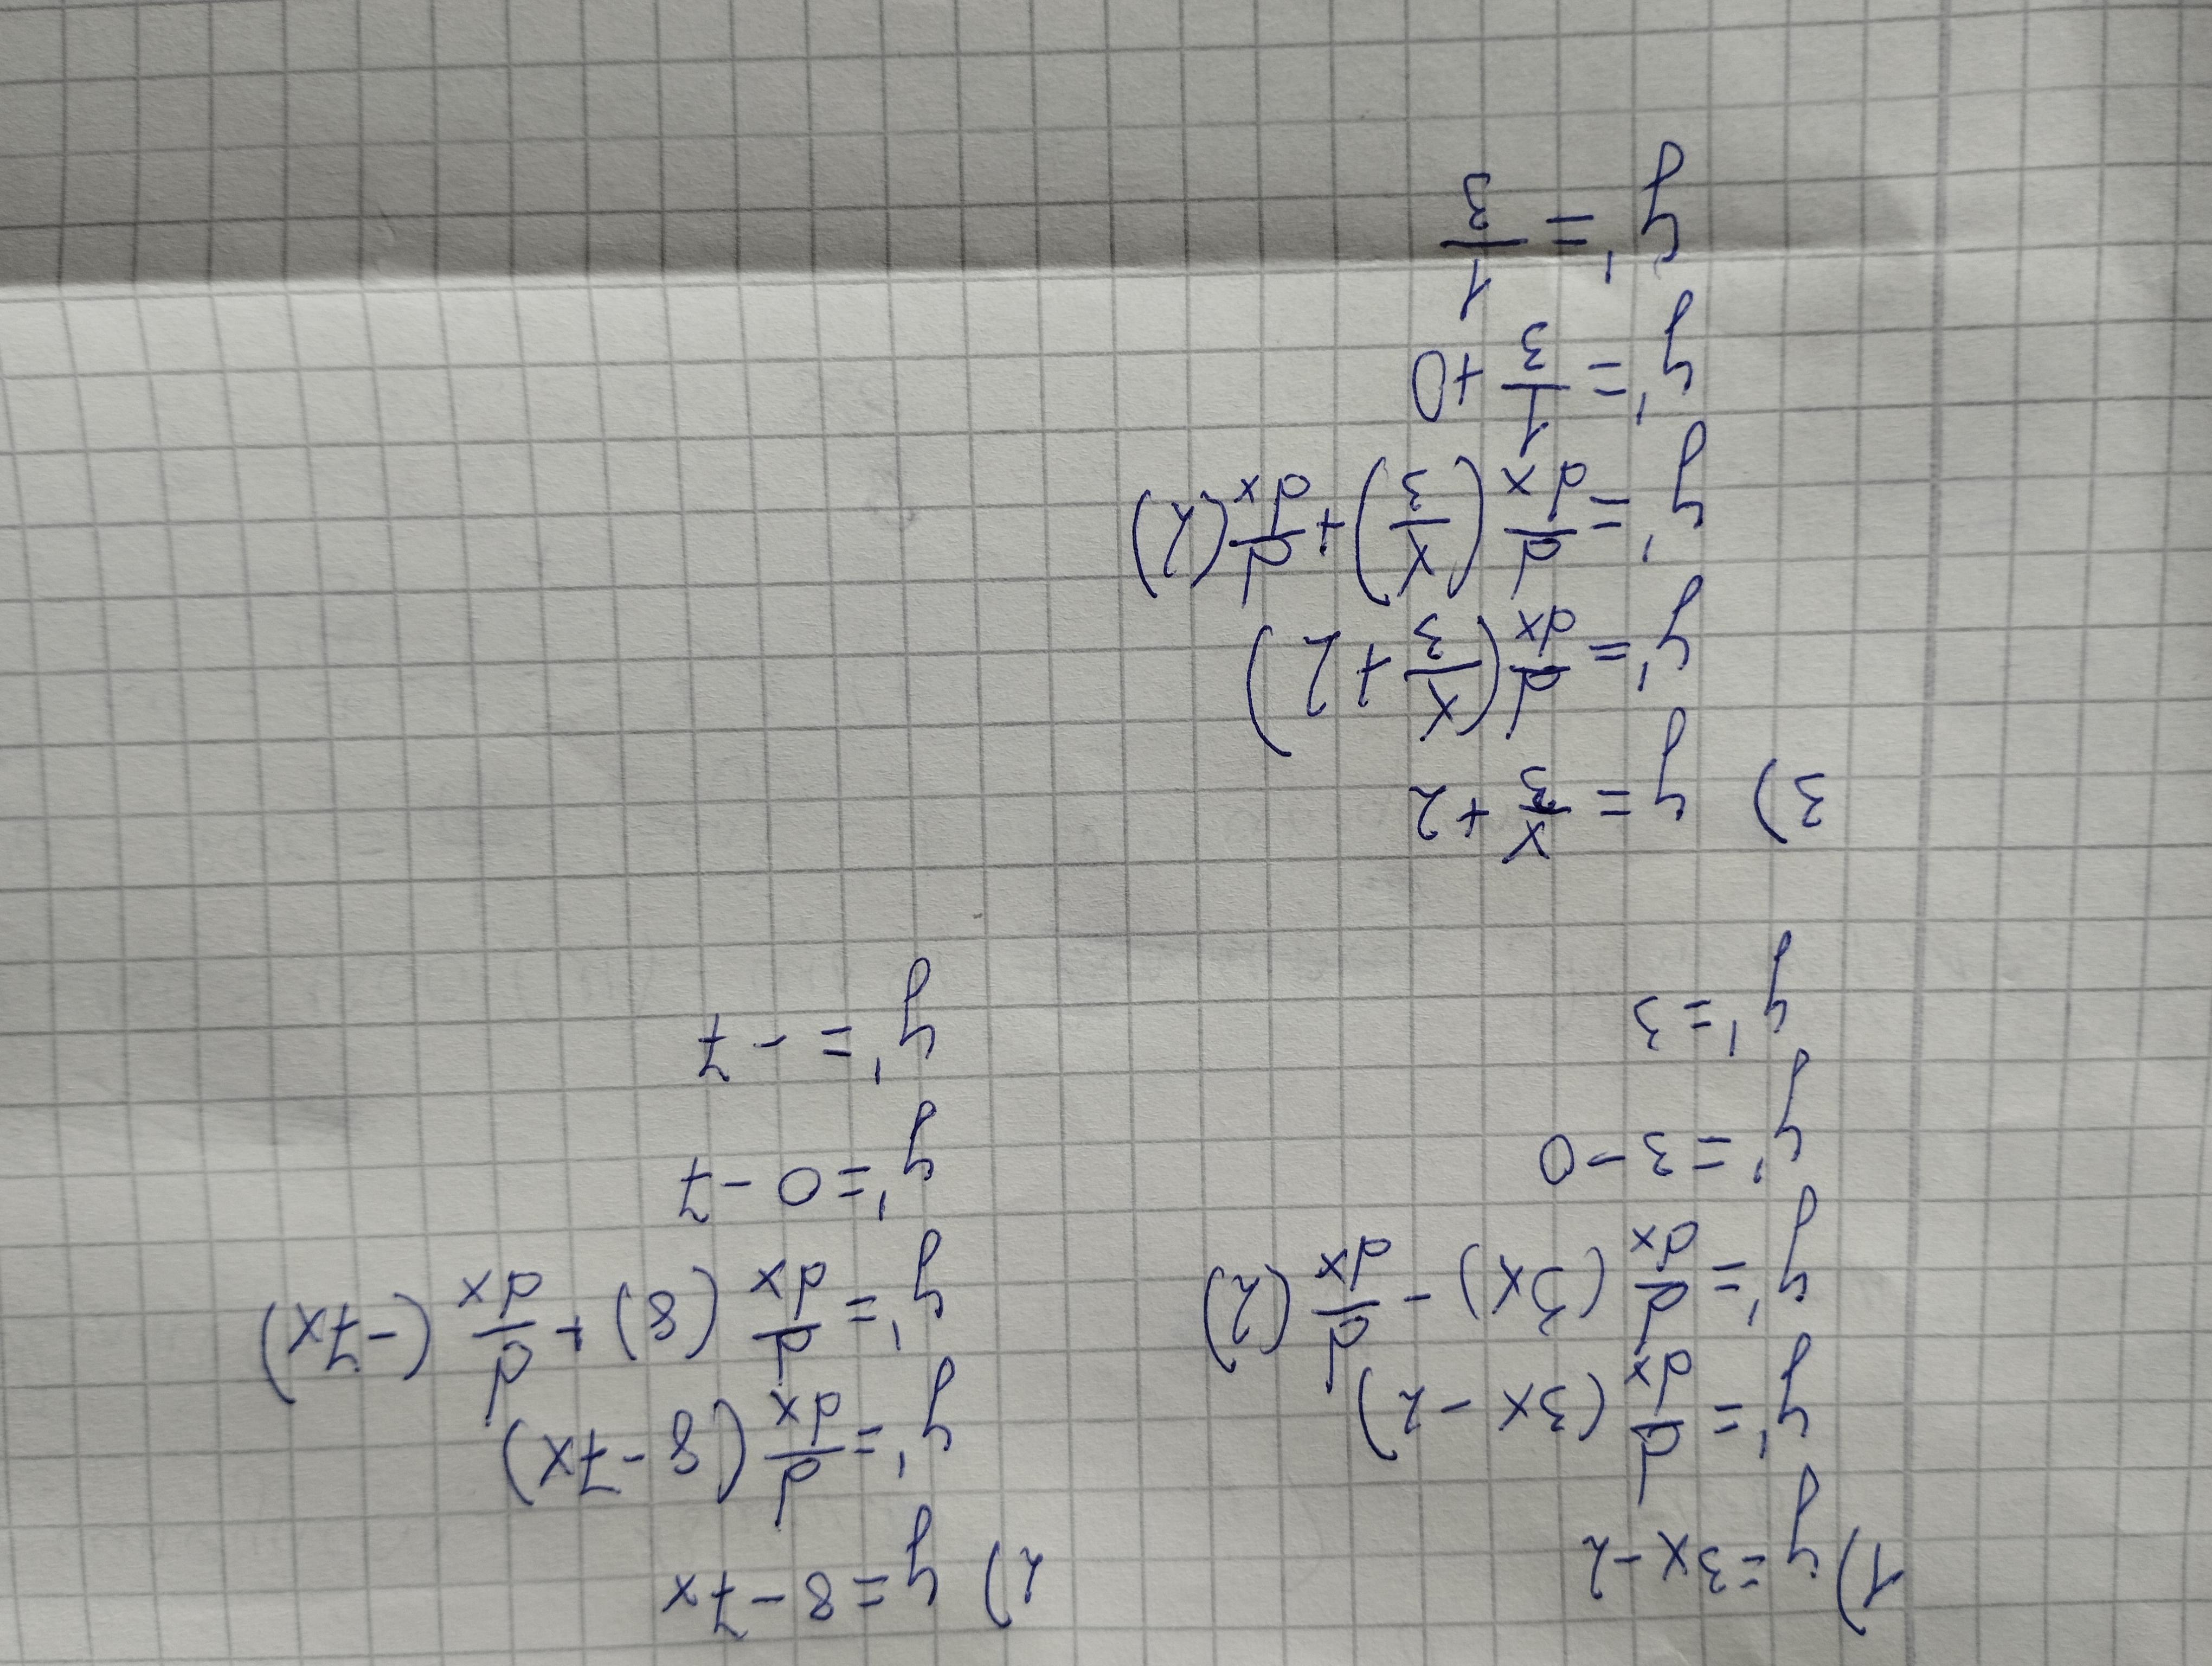 1) y=3x-2
y'=d/dx (3x-2)
y'=d/dx (3x) - d/dx (2)
y'=3-0
y'=3
2) y=8-7x
y'=d/dx (8-7x)
y'=d/dx (8) + d/dx (-7x)
y'=0-7
y'=-7
3) y=x/3+2
y'=d/dx (x/3+2)
y'=d/dx (x/3) + d/dx (2)
y'=1/3+0
y'=1/3